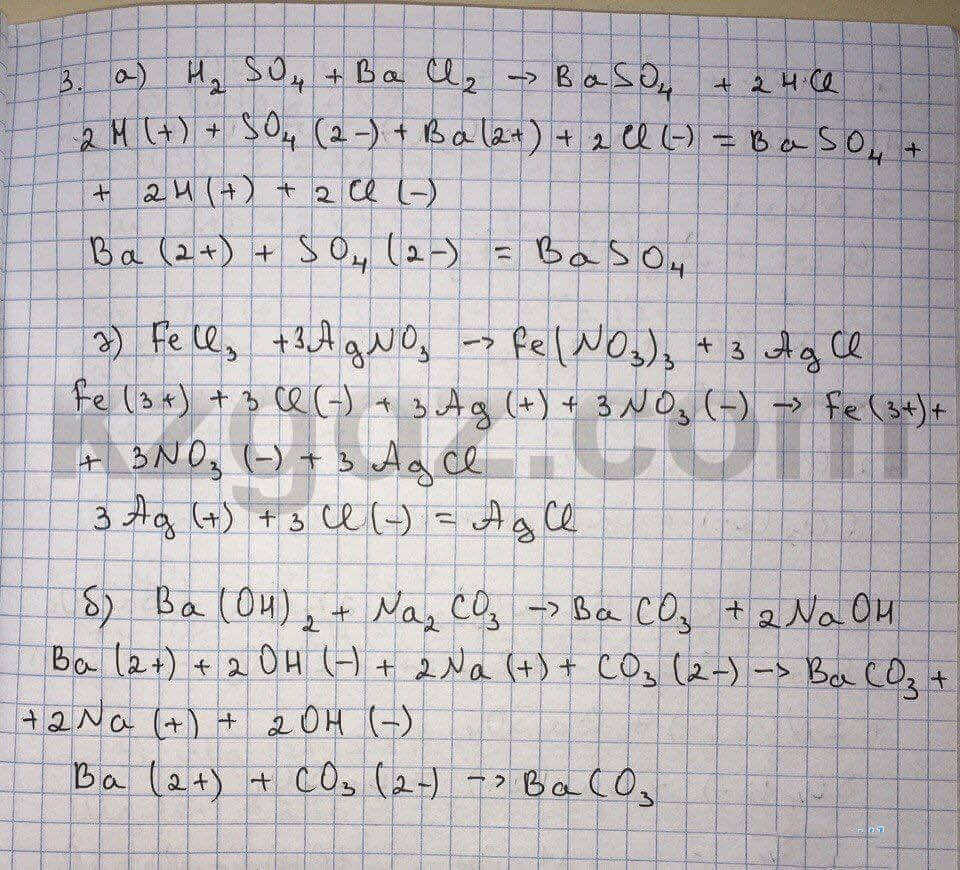 3. а) H₂SO₄ + BaCl₂ → BaSO₄ + 2HCl
2H(+) + SO₄(2-) + Ba(2+) + 2Cl(-) = BaSO₄ +
+ 2H(+) + 2Cl(-)
Ba(2+) + SO₄(2-) = BaSO₄
г) FeCl₃ + 3AgNO₃ → Fe(NO₃)₃ + 3AgCl
Fe(3+) + 3Cl(-) + 3Ag(+) + 3NO₃(-) → Fe(3+) +
+ 3NO₃(-) + 3AgCl
kzgdz.com
3Ag(+) + 3Cl(-) = AgCl
б) Ba(OH)₂ + Na₂CO₃ → BaCO₃ + 2NaOH
Ba(2+) + 2OH(-) + 2Na(+) + CO₃(2-) → BaCO₃ +
+ 2Na(+) + 2OH(-)
Ba(2+) + CO₃(2-) → BaCO₃